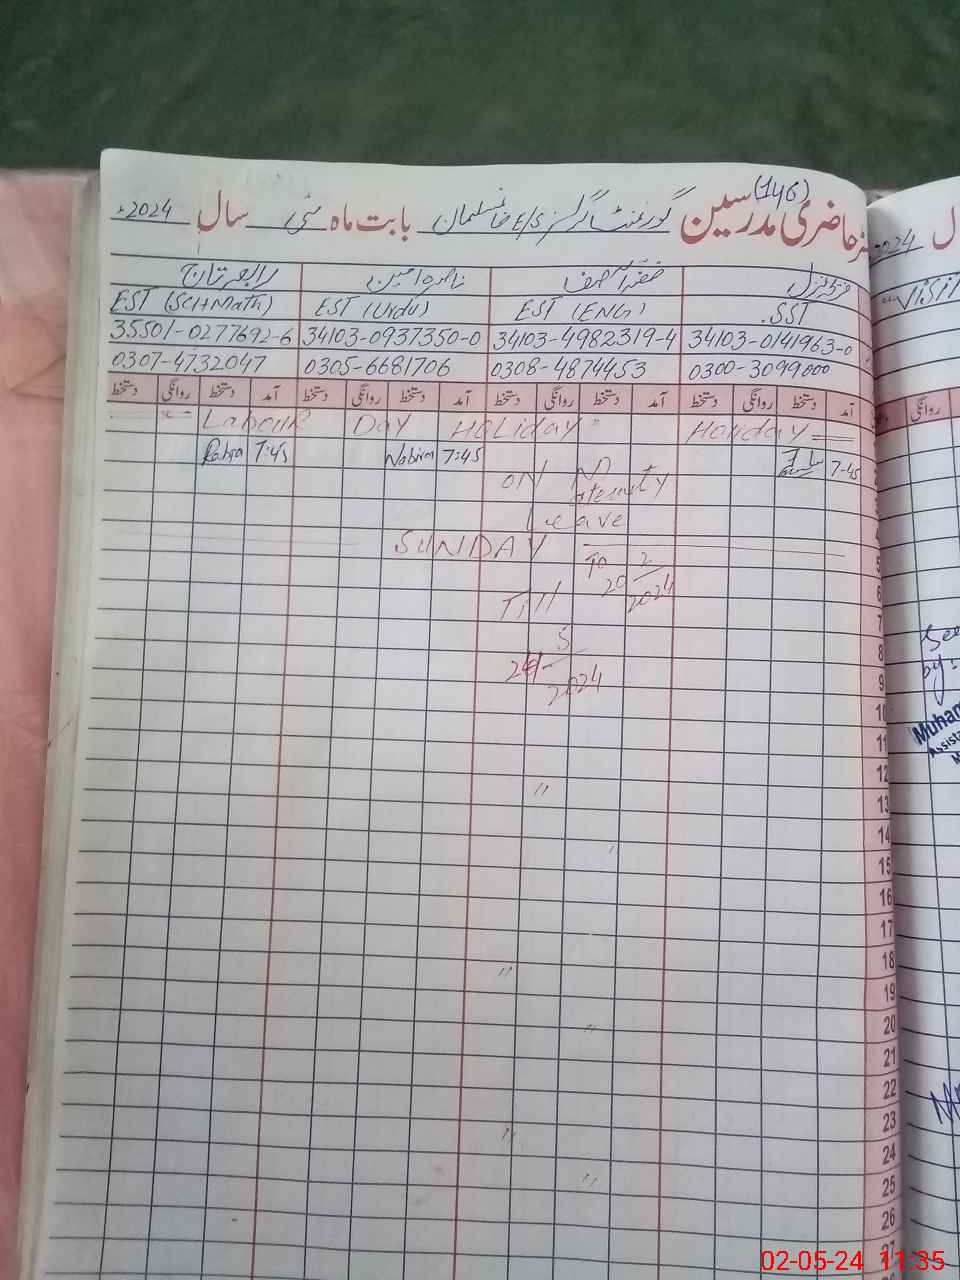 (146)
حاضری مدرسین گورنمنٹ گرلز E/S بابت ماہ مئی سال 2024ء
EST (Sci+Math) EST (Urdu) EST (ENG) SST.
35501-0277692-6 34103-0937350-0 34103-4982319-4 34103-0141963-0
0307-4732047 0305-6681706 0308-4874453 0300-3099000
آمد دستخط روانگی دستخط آمد دستخط روانگی دستخط آمد دستخط روانگی دستخط آمد دستخط روانگی دستخط
Labour Day Holiday " Holiday
Rabia 7:45 7:45 7-45
ON Maternity
Leave
SUNDAY
To 20 2 2024
Till
24 5 2024
"
"
"
"
"
5
6
7
8
9
10
11
12
13
14
15
16
17
18
19
20
21
22
23
24
25
26
27
2024 ل
Visit
روانگی دستخط
See
by:
Muham
Assista
M
02-05-24 11:35